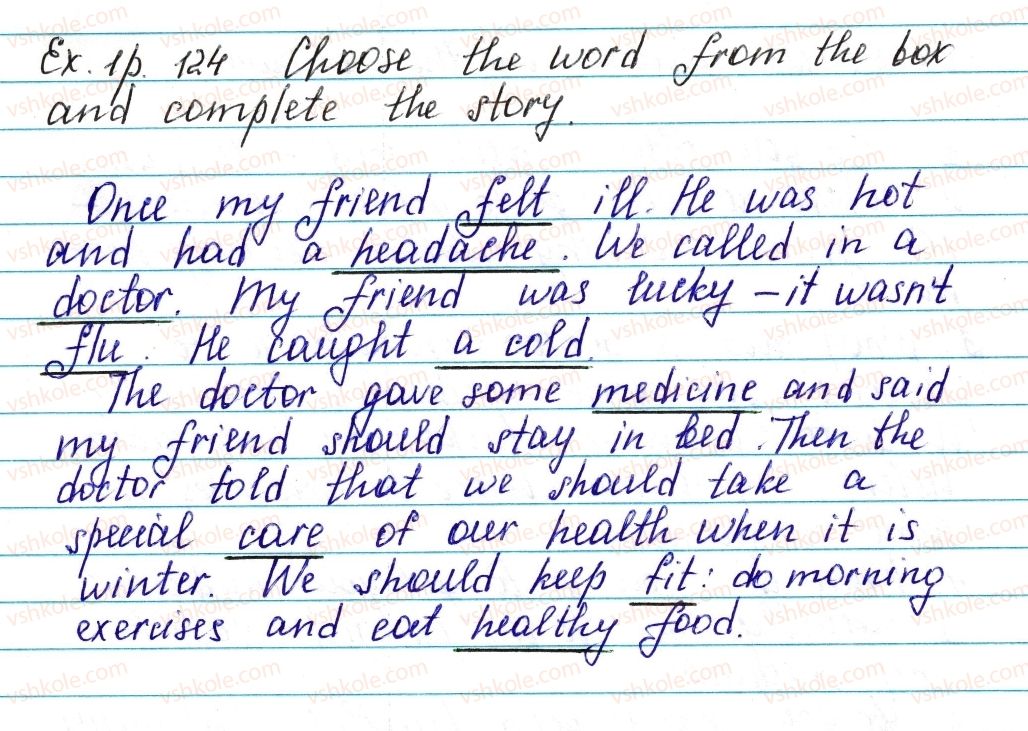 Ex. 1p. 124 Choose the word from the box
and complete the story.
Once my friend felt ill. He was hot
and had a headache. We called in a
doctor. My friend was lucky – it wasn't
flu. He caught a cold.
The doctor gave some medicine and said
my friend should stay in bed. Then the
doctor told that we should take a
special care of our health when it is
winter. We should keep fit: do morning
exercises and eat healthy food.